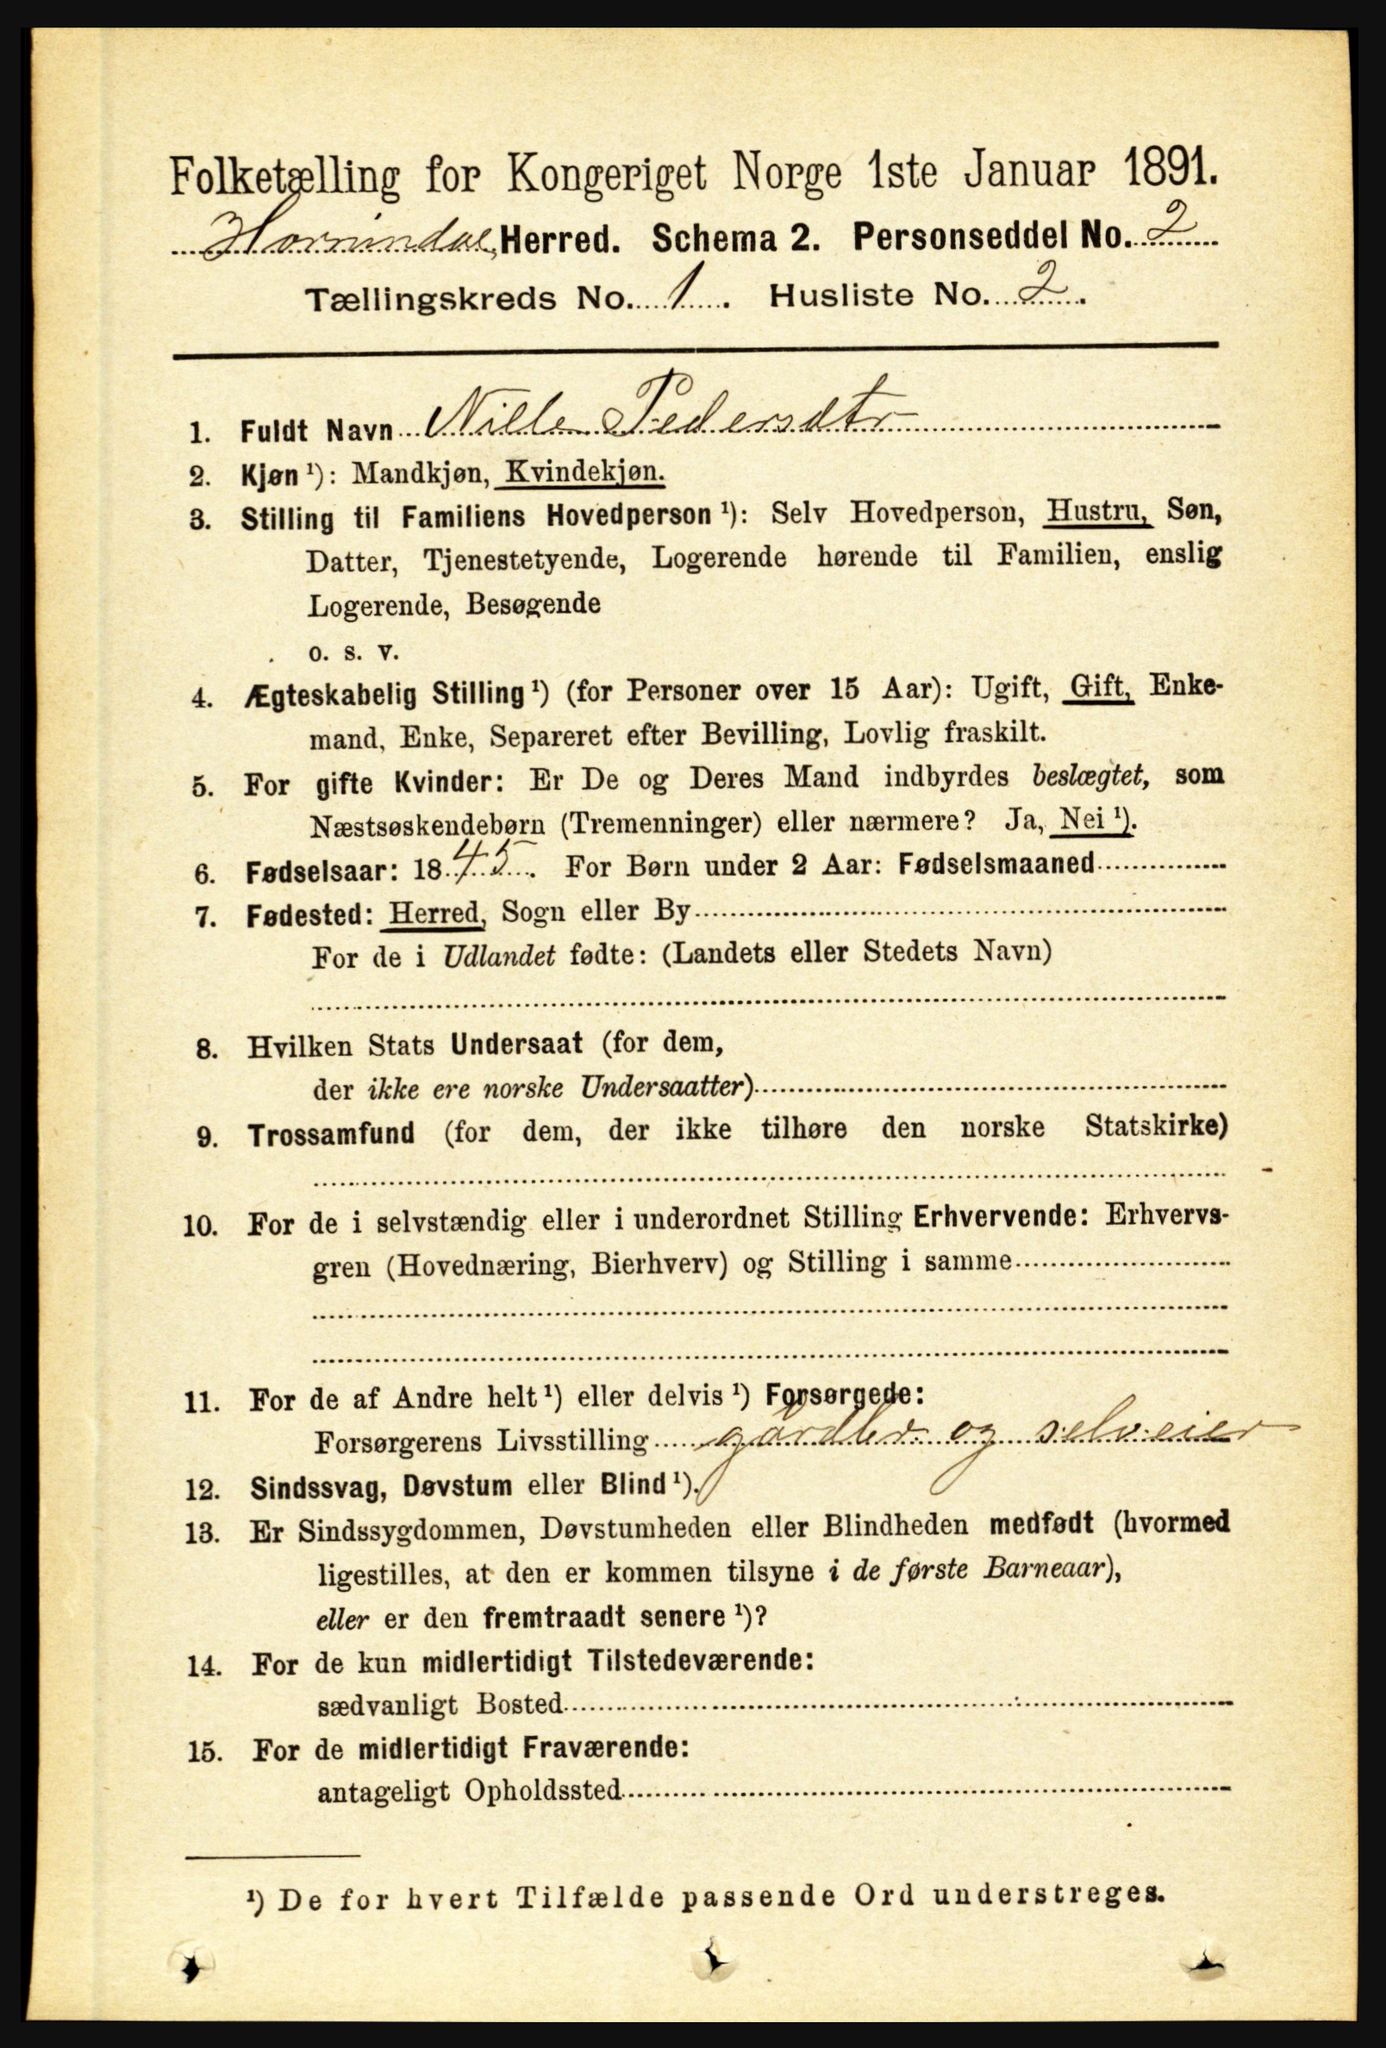 Folketælling for Kongeriget Norge 1ste Januar 1891.
Hornindal Herred. Schema 2. Personseddel No. 2
Tællingskreds No. 1. Husliste No. 2.
1. Fuldt Navn Nille Pedersdtr
2. Kjøn ¹): Mandkjøn, Kvindekjøn.
3. Stilling til Familiens Hovedperson ¹): Selv Hovedperson, Hustru, Søn,
Datter, Tjenestetyende, Logerende hørende til Familien, enslig
Logerende, Besøgende
o. s. v.
4. Ægteskabelig Stilling ¹) (for Personer over 15 Aar): Ugift, Gift, Enke-
mand, Enke, Separeret efter Bevilling, Lovlig fraskilt.
5. For gifte Kvinder: Er De og Deres Mand indbyrdes beslægtet, som
Næstsøskendebørn (Tremenninger) eller nærmere? Ja, Nei ¹).
6. Fødselsaar: 1845. For Børn under 2 Aar: Fødselsmaaned
7. Fødested: Herred, Sogn eller By
For de i Udlandet fødte: (Landets eller Stedets Navn)
8. Hvilken Stats Undersaat (for dem,
der ikke ere norske Undersaatter)
9. Trossamfund (for dem, der ikke tilhøre den norske Statskirke)
10. For de i selvstændig eller i underordnet Stilling Erhvervende: Erhvervs-
gren (Hovednæring, Bierhverv) og Stilling i samme
11. For de af Andre helt ¹) eller delvis ¹) Forsørgede:
Forsørgerens Livsstilling gårdbr og selveier
12. Sindssvag, Døvstum eller Blind ¹).
13. Er Sindssygdommen, Døvstumheden eller Blindheden medfødt (hvormed
ligestilles, at den er kommen tilsyne i de første Barneaar),
eller er den fremtraadt senere ¹)?
14. For de kun midlertidigt Tilstedeværende:
sædvanligt Bosted
15. For de midlertidigt Fraværende:
antageligt Opholdssted
¹) De for hvert Tilfælde passende Ord understreges.